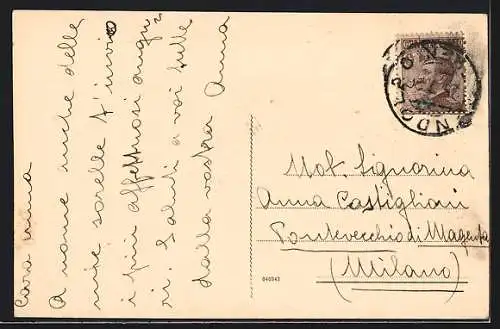 Cara mina
A nome anche delle
mie sorelle t'invio
i più affettuosi augu-
ri. Saluti a voi tutte
dalla vostra Anna
Not. Signorina
Anna Castiglioni
Pontevecchio di Magenta
(Milano)
040943